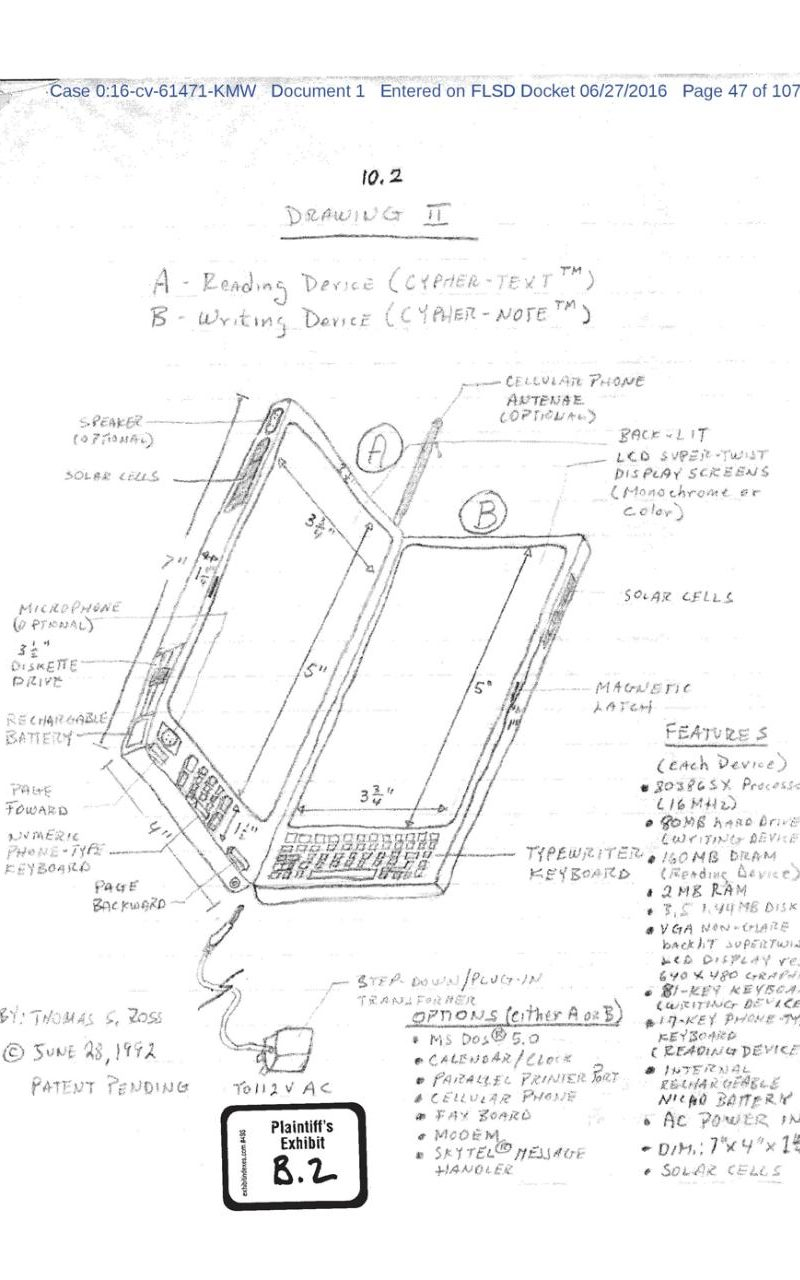 Case 0:16-cv-61471-KMW Document 1 Entered on FLSD Docket 06/27/2016 Page 47 of 107
10.2
DRAWING II
A - Reading Device (CYPHER-TEXT™)
B - Writing Device (CYPHER-NOTE™)
CELLULAR PHONE
ANTENAE
(OPTIONAL)
SPEAKER
(OPTIONAL)
SOLAR CELLS
A
BACK-LIT
LCD SUPER-TWIST
DISPLAY SCREENS
(Monochrome or
Color)
B
3 3/4"
7"
SOLAR CELLS
MICROPHONE
(OPTIONAL)
3 1/2"
DISKETTE
DRIVE
5"
5"
MAGNETIC
LATCH
RECHARGABLE
BATTERY
FEATURES
(each Device)
• 80386SX Process
(16 MHz)
• 80MB HARD DRIVE
(WRITING DEVICE
• 160MB DRAM
(Reading Device)
• 2 MB RAM
• 3.5 1.44MB DISK
• VGA NON-GLARE
backlit SUPERTWIS
LCD DISPLAY re
640 X 480 GRAPH
• 81-KEY KEYBOA
(WRITING DEVICE
• 17-KEY PHONE-TY
KEYBOARD
(READING DEVICE
• INTERNAL
RECHARGEABLE
NICAD BATTERY
• AC POWER IN
• DIM.: 7"x 4"x 1
• SOLAR CELLS
PAGE
FOWARD
4"
3 3/4"
1 1/2"
NUMERIC
PHONE-TYPE
KEYBOARD
TYPEWRITER
KEYBOARD
PAGE
BACKWARD
STEP-DOWN/PLUG-IN
TRANSFORMER
TO 112 V AC
OPTIONS (either A or B)
• MS DOS® 5.0
• CALENDAR/CLOCK
• PARALLEL PRINTER PORT
• CELLULAR PHONE
• FAX BOARD
• MODEM
• SKYTEL® MESSAGE
HANDLER
BY: THOMAS S. ROSS
© JUNE 28, 1992
PATENT PENDING
exhibitindexes.com
Plaintiff's
Exhibit
B.2